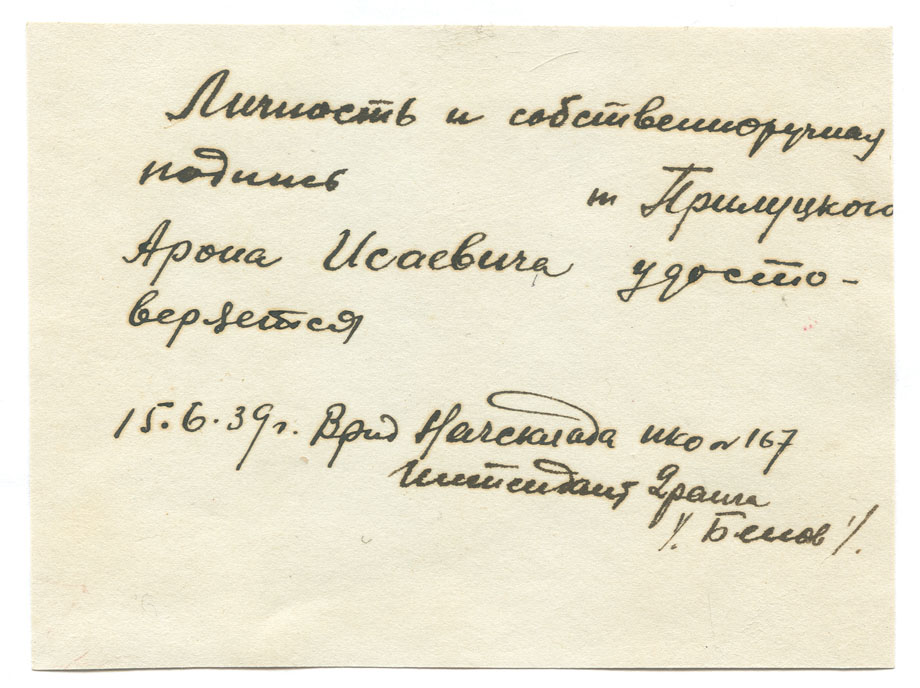 Личность и собственноручная
подпись т Прилуцкого
Арона Исаевича удосто-
веряется
15.6.39г. Врид Начсклада НКО № 167
Интендант 2 ранга
/. Белов /.